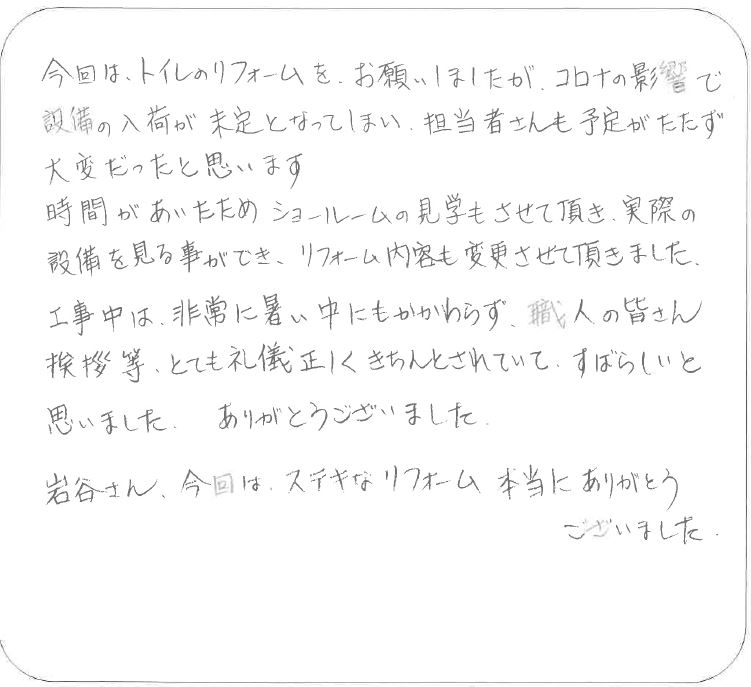 今回は、トイレのリフォームを、お願いしましたが、コロナの影響で
設備の入荷が未定となってしまい、担当者さんも予定がたたず
大変だったと思います
時間があいたためショールームの見学もさせて頂き、実際の
設備を見る事ができ、リフォーム内容も変更させて頂きました、
工事中は、非常に暑い中にもかかわらず、職人の皆さん
挨拶等、とても礼儀正しくきちんとされていて、すばらしいと
思いました、 ありがとうございました、
岩谷さん、今回は、ステキなリフォーム本当にありがとう
ございました、